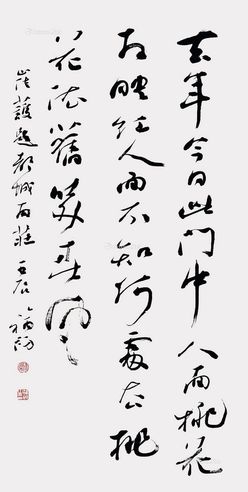 去年今日此門中人面桃花
相映紅人面不知何處去桃
花依舊笑春風
崔護題都城南莊